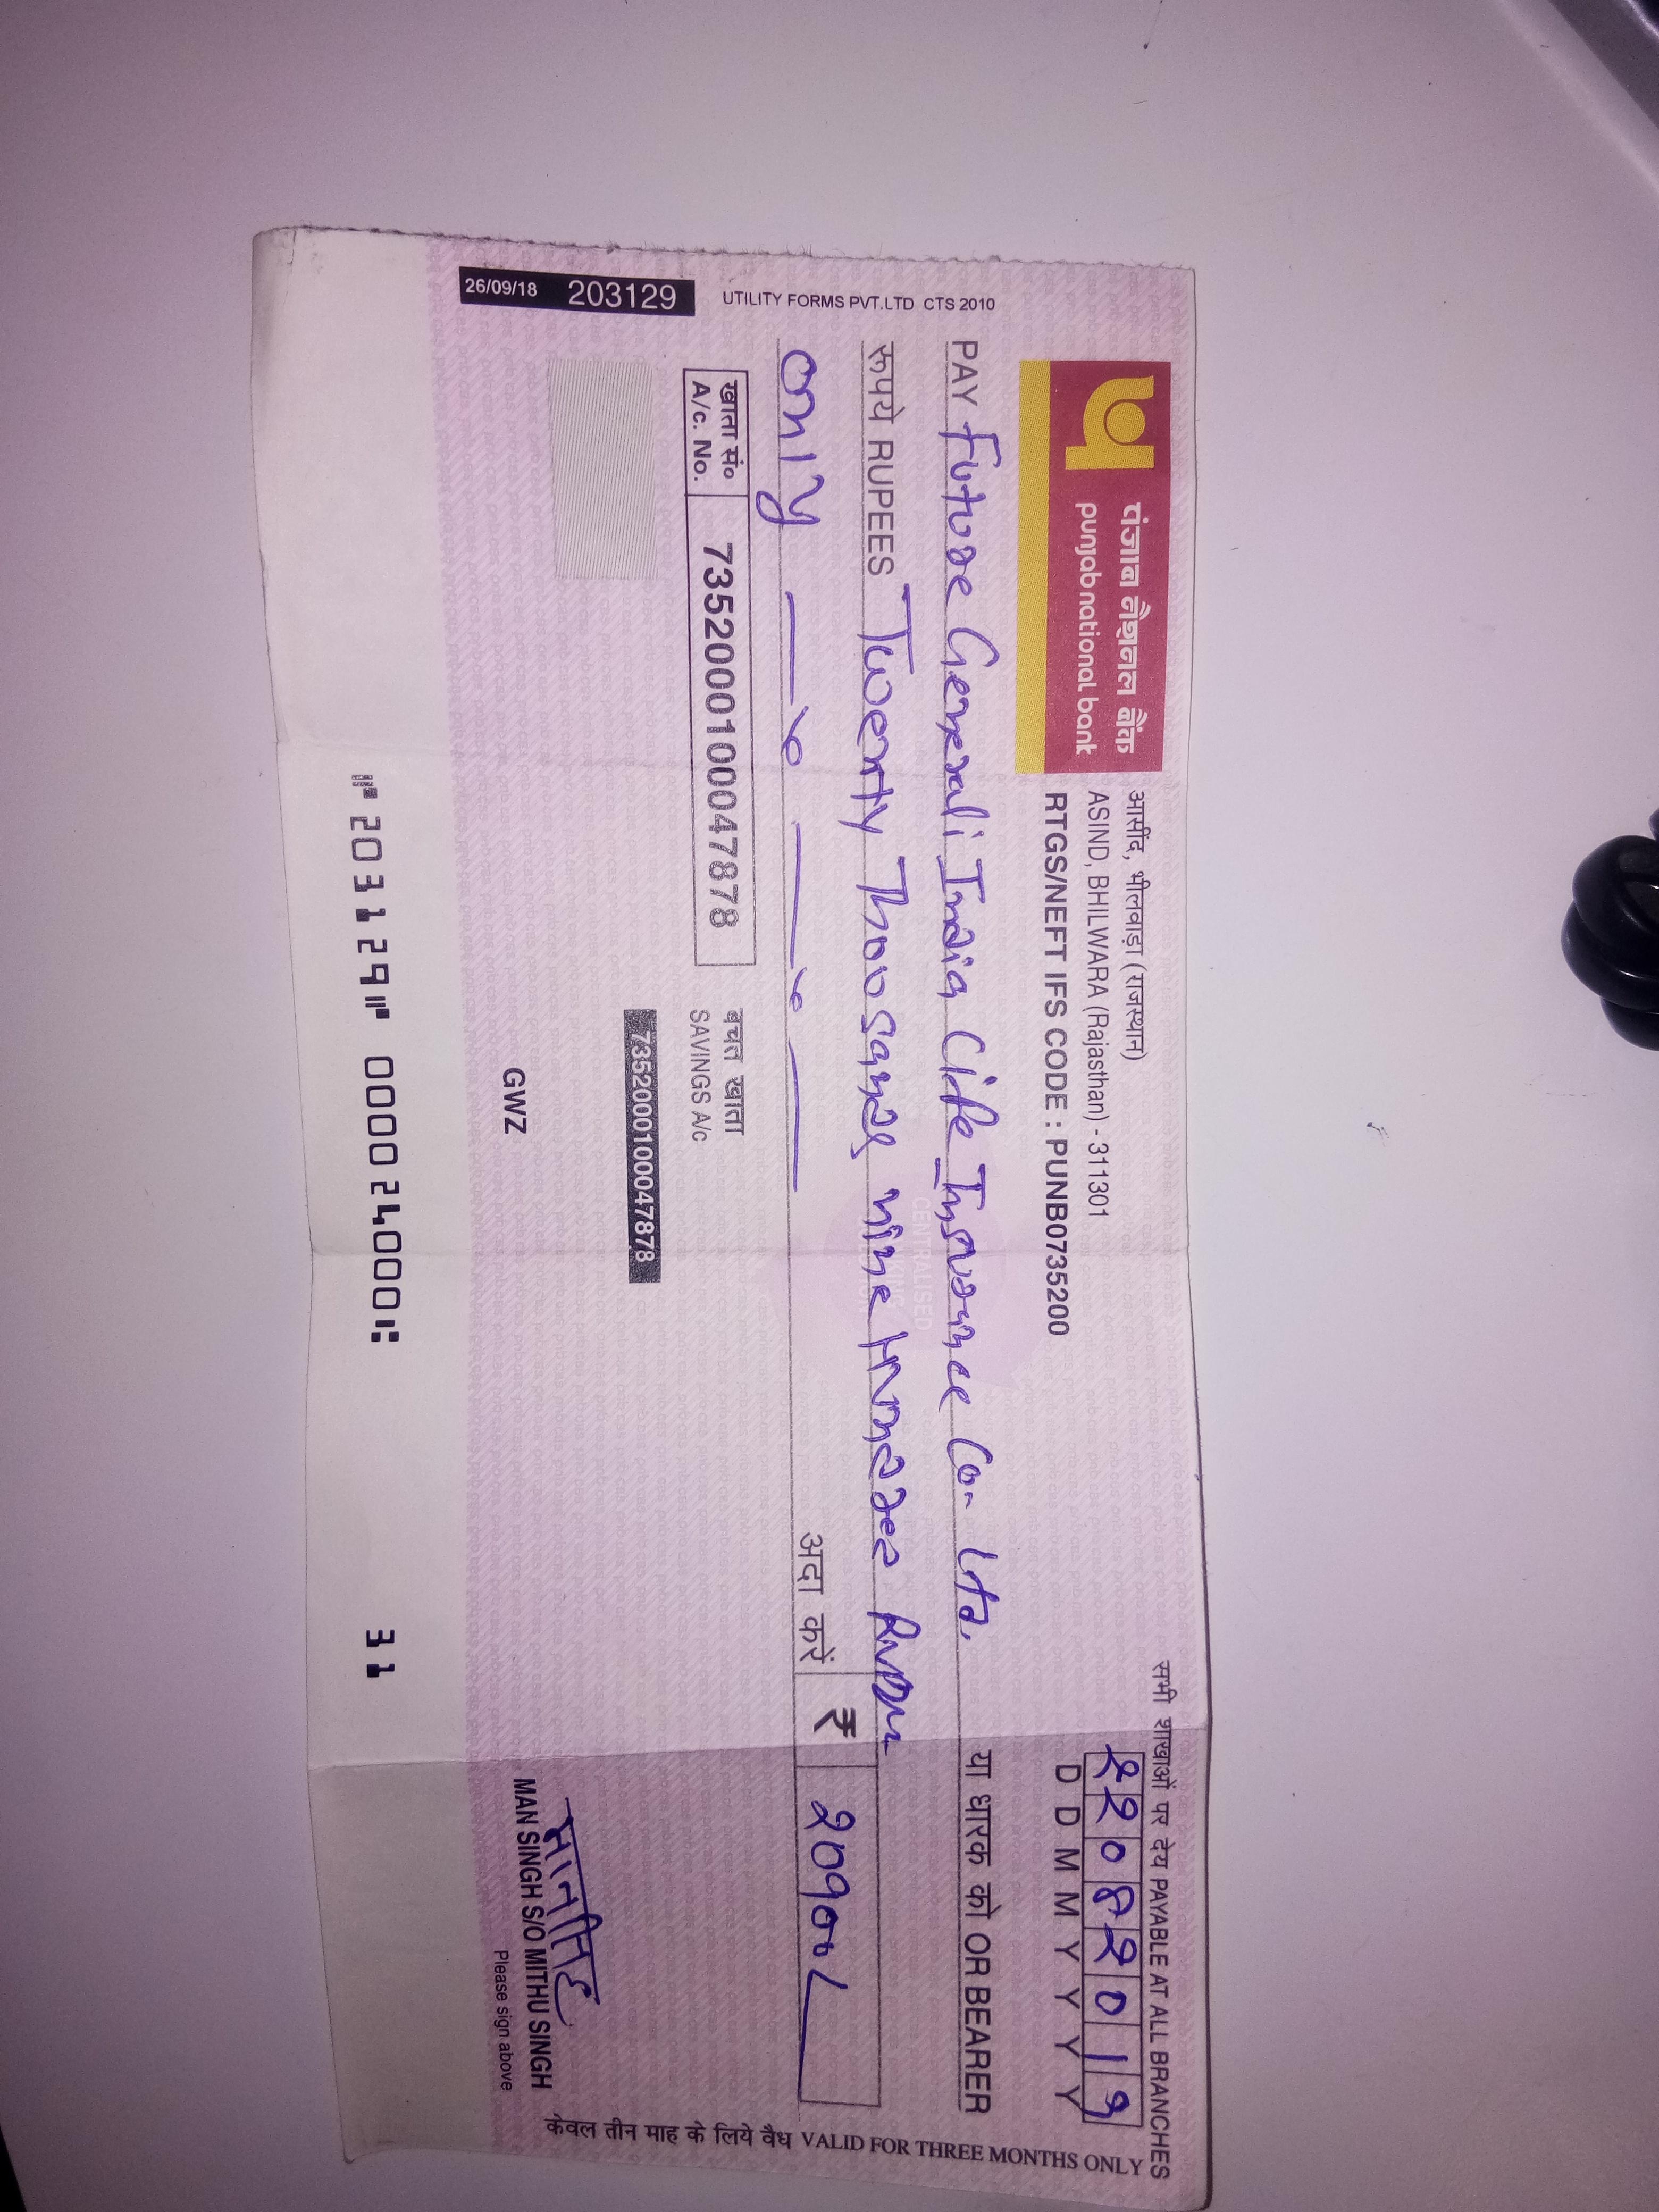 पंजाब नैशनल बैंक
punjab national bank
आसींद, भीलवाड़ा (राजस्थान)
ASIND, BHILWARA (Rajasthan) - 311301
RTGS/NEFT IFS CODE : PUNB0735200
सभी शाखाओं पर देय PAYABLE AT ALL BRANCHES
22082019
D D M M Y Y Y Y
PAY Future Generali India Life Insurance Co. Ltd. या धारक को OR BEARER
रूपये RUPEES Twenty Thousand nine Hundred
only अदा करें ₹ 20900/
खाता सं० A/c. No. 7352000100047878
बचत खाता
SAVINGS A/c
7352000100047878
GWZ
मानसिंह
MAN SINGH S/O MITHU SINGH
Please sign above
⑈203129⑈ 000024000⑆ 31
26/09/18 203129
UTILITY FORMS PVT.LTD CTS 2010
केवल तीन माह के लिये वैध VALID FOR THREE MONTHS ONLY